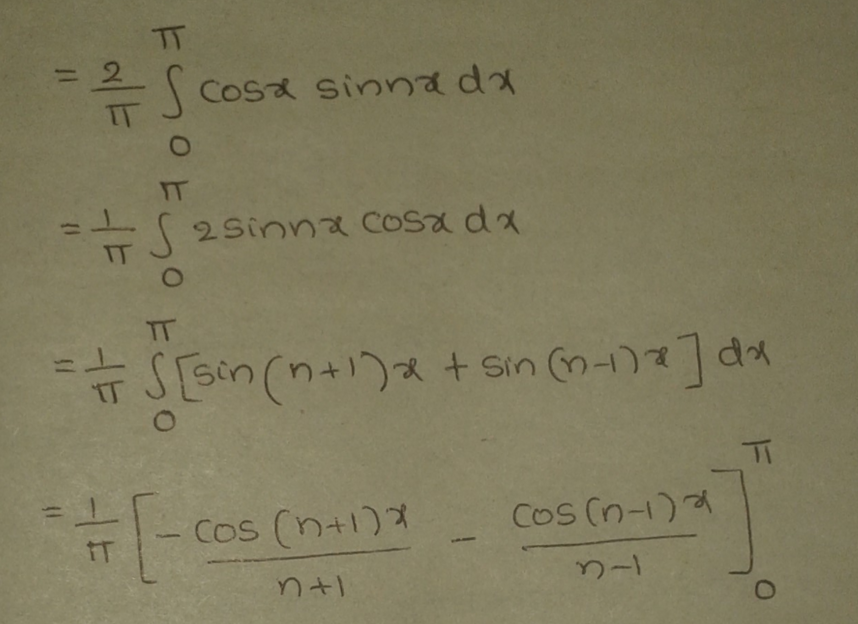 = 2/π ∫₀^π cosx sinnx dx
= 1/π ∫₀^π 2sinnx cosx dx
= 1/π ∫₀^π [sin(n+1)x + sin(n-1)x] dx
= 1/π [-cos(n+1)x/n+1 - cos(n-1)x/n-1]₀^π